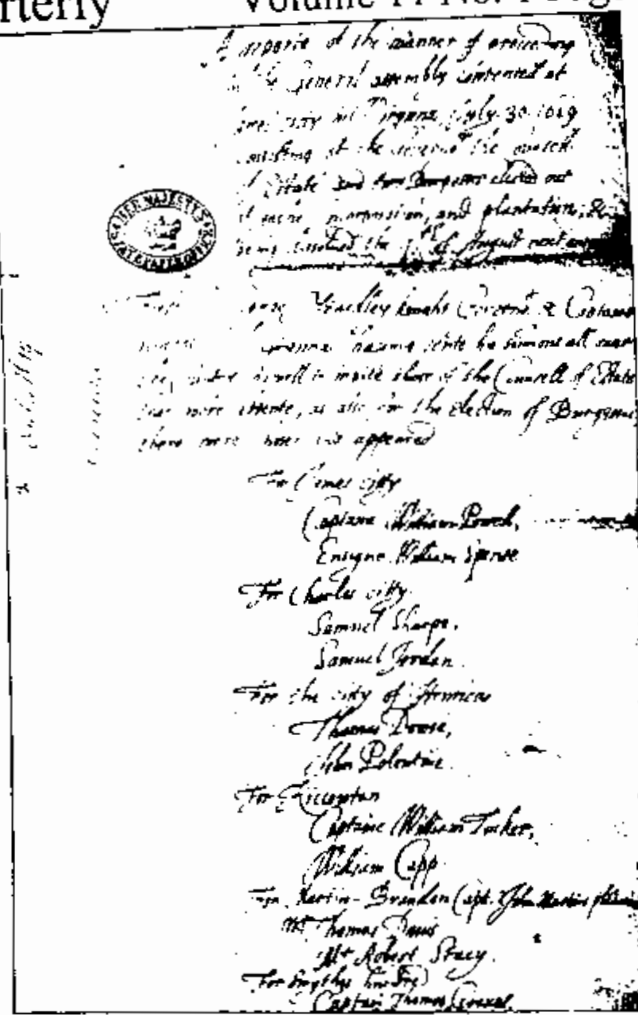 rterly Volume 11 No.
A reporte of the manner of proceeding
in the General assembly convented at
citty in Virginia July 30 1619
consisting of the Governor the counsell
of Estate and two Burgesses elected out
of eache incorporation, and plantation, &
being dissolved the of August next
HER MAJESTY'S STATE PAPER OFFICE
Yeardley knight Governor & Captaine
having sente his sumons all over
as well to invite those of the Councell of Estate
that were absente, as also for the election of Burgesses,
there were and appeared
For James citty
Captaine William Powell,
Ensigne William Spense
For Charles citty
Samuel Sharpe,
Samuel Jordan
For the city of Henricus
Thomas Dowse,
John Polentine
For Kiccowtan
Captaine William Tucker,
William Capp
For Martin-Brandon Capt. John Martins
Mr Thomas Davis
Mr Robert Stacy.
For Smythes hundred
Captain Thomas Graves